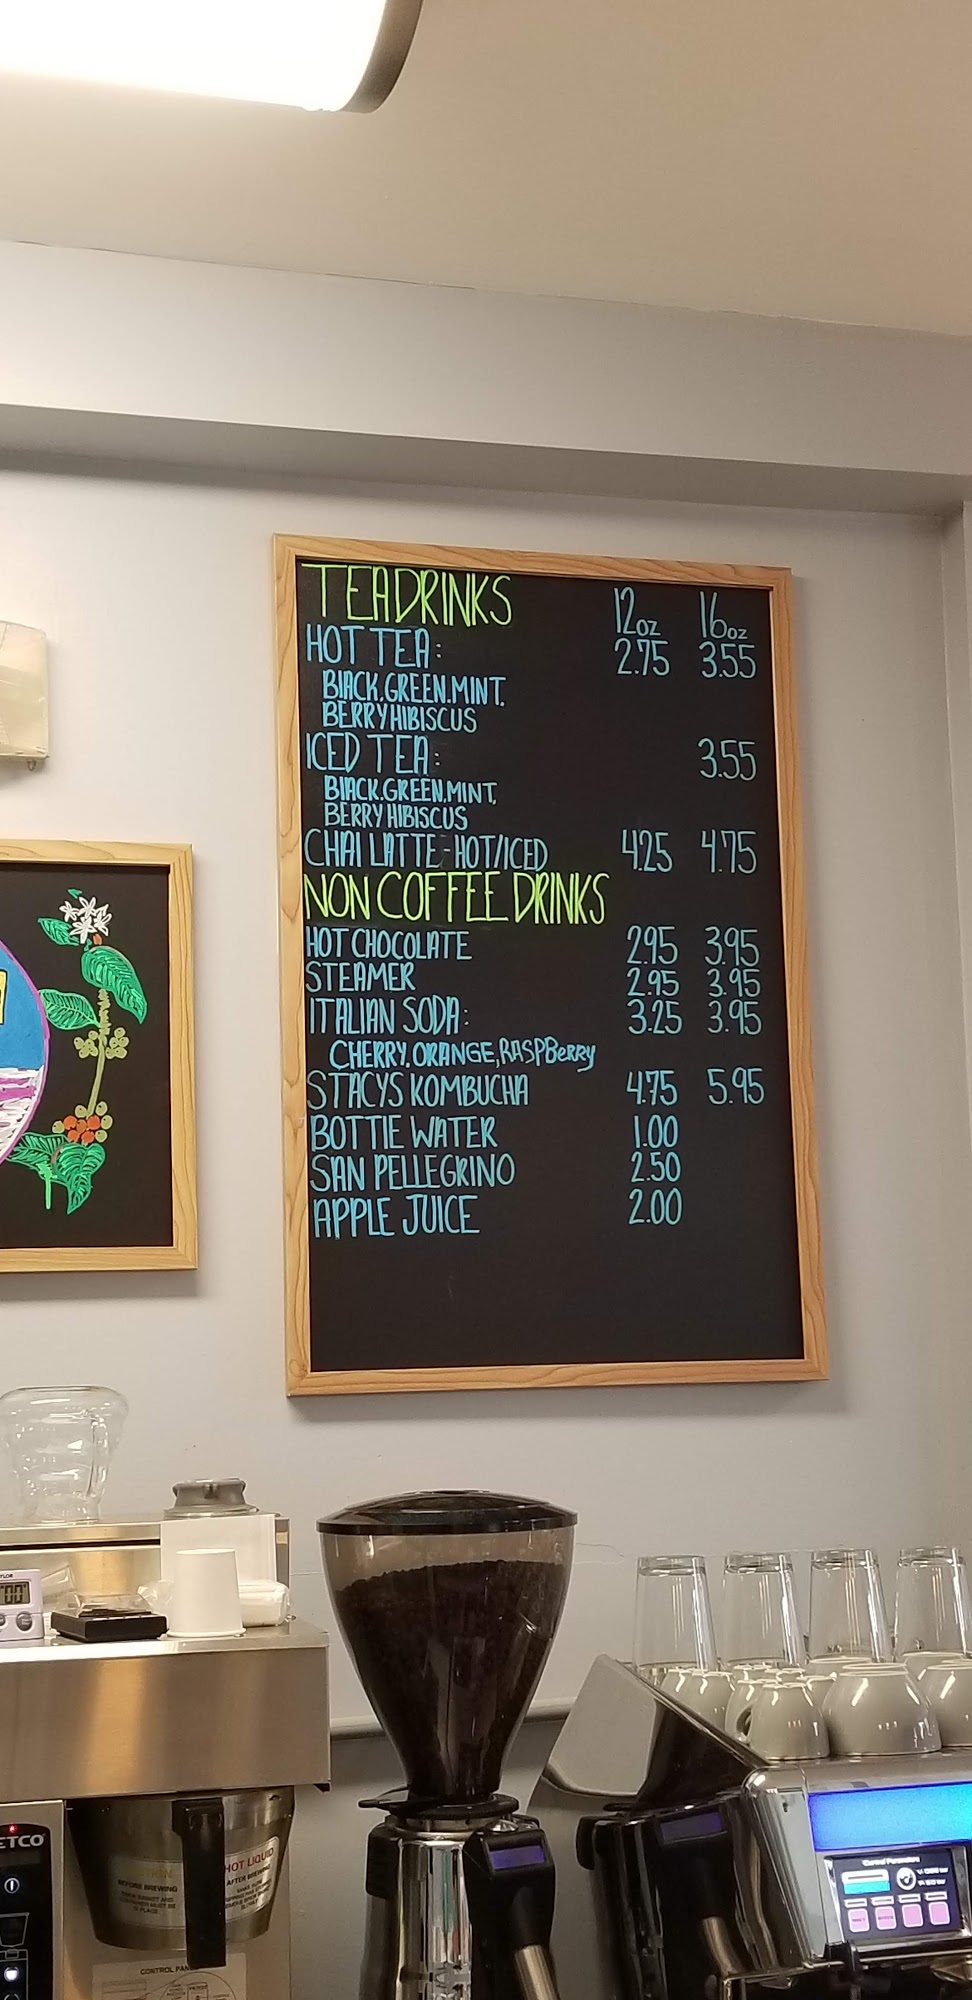 TEA DRINKS 12oz 16oz
HOT TEA: 2.75 3.55
BLACK, GREEN, MINT,
BERRY HIBISCUS
ICED TEA: 3.55
BLACK, GREEN, MINT,
BERRY HIBISCUS
CHAI LATTE - HOT/ICED 4.25 4.75
NON COFFEE DRINKS
HOT CHOCOLATE 2.95 3.95
STEAMER 2.95 3.95
ITALIAN SODA: 3.25 3.95
CHERRY, ORANGE, RASPBerry
STACYS KOMBUCHA 4.75 5.95
BOTTLE WATER 1.00
SAN PELLEGRINO 2.50
APPLE JUICE 2.00
ETCO
BEFORE BREWING
HOT LIQUID
AFTER BREWING
CONTROL PAN
Control Parameters